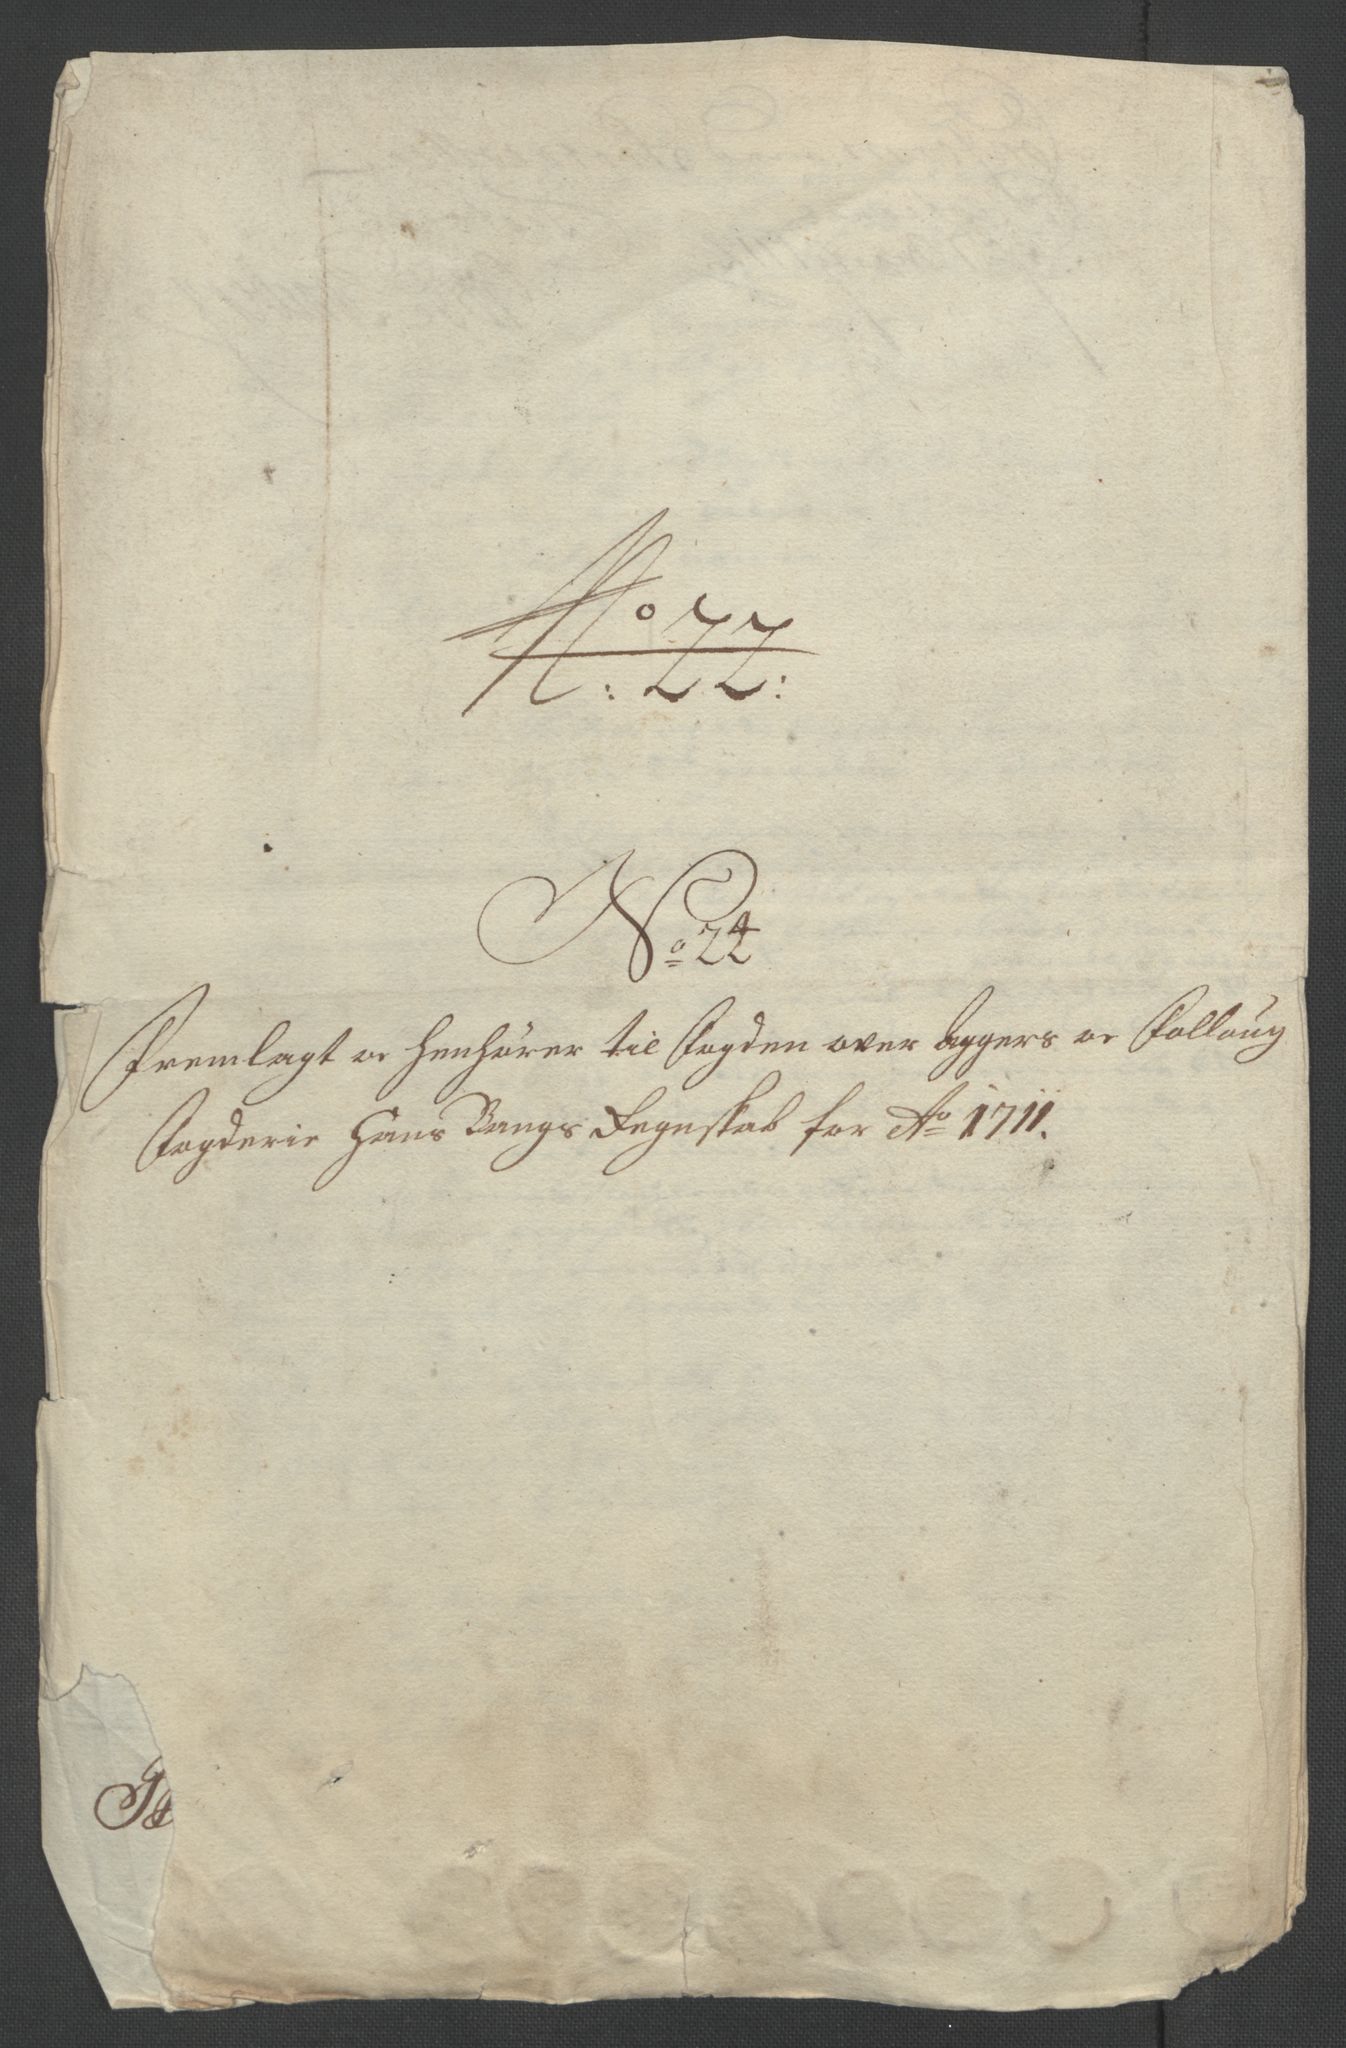 No: 22:
No 24
Fremlagt oc henhører til fogden over Aggers oc Folloug
fogderie Hans Bangs Regnskab for Ao 1711.